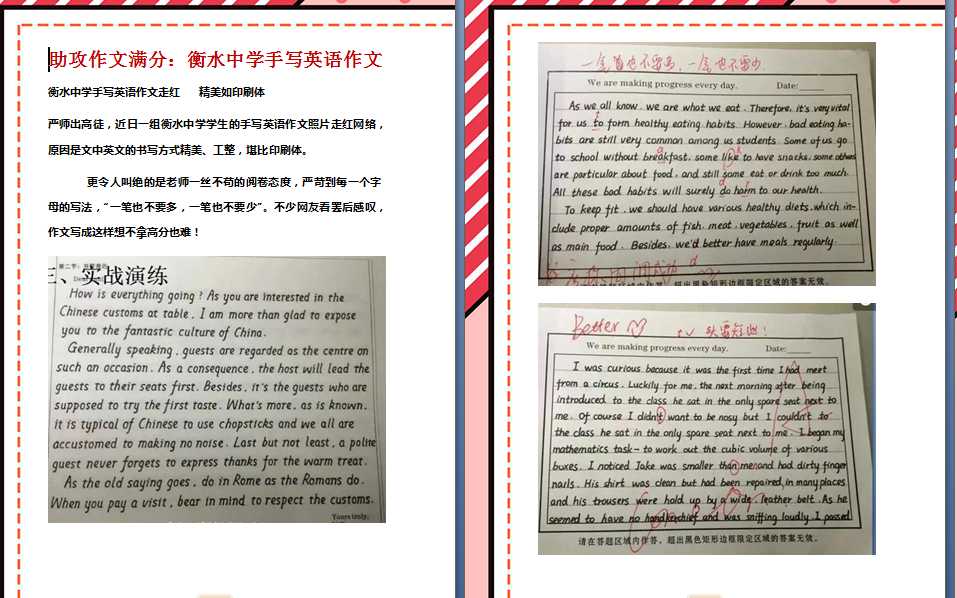 助攻作文满分：衡水中学手写英语作文
衡水中学手写英语作文走红 精美如印刷体
严师出高徒，近日一组衡水中学学生的手写英语作文照片走红网络，
原因是文中英文的书写方式精美、工整，堪比印刷体。
更令人叫绝的是老师一丝不苟的阅卷态度，严苛到每一个字
母的写法，“一笔也不要多，一笔也不要少”。不少网友看罢后感叹，
作文写成这样想不拿高分也难！
三、实战演练
How is everything going? As you are interested in the
Chinese customs at table, I am more than glad to expose
you to the fantastic culture of China.
Generally speaking, guests are regarded as the centre on
such an occasion. As a consequence, the host will lead the
guests to their seats first. Besides, it's the guests who are
supposed to try the first taste. What's more, as is known,
it is typical of Chinese to use chopsticks and we all are
accustomed to making no noise. Last but not least, a polite
guest never forgets to express thanks for the warm treat.
As the old saying goes, do in Rome as the Romans do.
When you pay a visit, bear in mind to respect the customs.
Yours truly,
一笔也不要多，一笔也不要少
We are making progress every day. Date:
As we all know, we are what we eat. Therefore, it's very vital
for us to form healthy eating habits. However, bad eating ha-
bits are still very common among us students. Some of us go
to school without breakfast, some like to have snacks, some others
are particular about food, and still some eat or drink too much.
All these bad habits will surely do harm to our health.
To keep fit, we should have various healthy diets, which in-
clude proper amounts of fish, meat, vegetables, fruit as well
as main food. Besides, we'd better have meals regularly.
超出黑色矩形边框限定区域的答案无效。
Better
We are making progress every day. Date:
I was curious because it was the first time I had meet
from a circus. Luckily for me, the next morning after being
introduced to the class he sat in the only spare seat next to
me. Of course I didn't want to be nosy but I couldn't to
the class he sat in the only spare seat next to me. I began my
mathematics task- to work out the cubic volume of various
buxes. I noticed Jake was smaller than me and had dirty finger
nails. His shirt was clean but had been repaired in many places
and his trousers were hold up by a wide, leather belt. As he
seemed to have no handkerchief and was sniffing loudly. I passed
请在答题区域内作答，超出黑色矩形边框限定区域的答案无效。